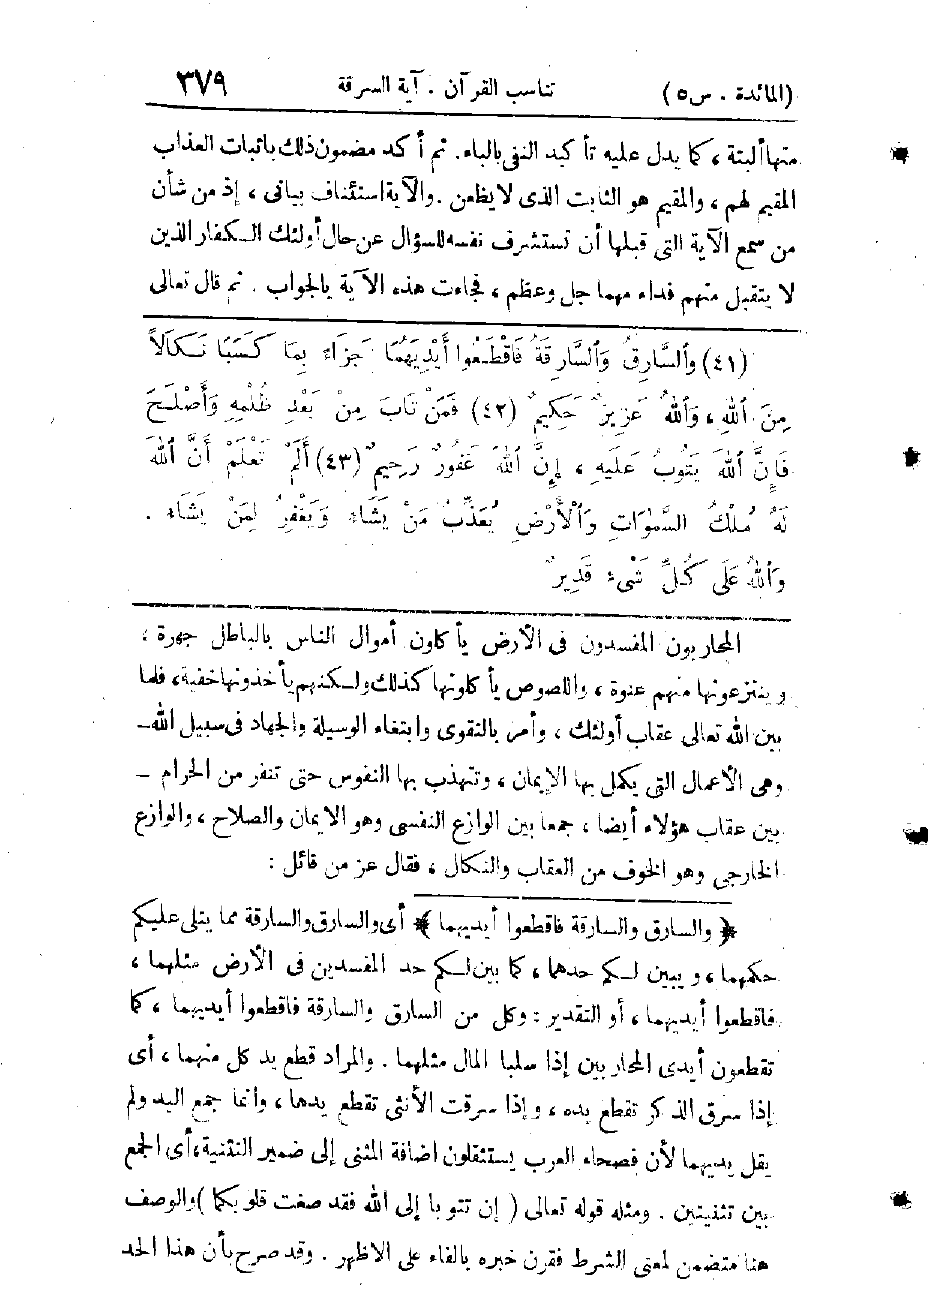 (المائدة . س٥) تناسب القرآن . آية السرقة ٣٧٩
منها ألبتة ، كما يدل عليه تأكيد النفى بالباء. ثم أكد مضمون ذلك باثبات العذاب
المقيم لهم ، والمقيم هو الثابت الذى لا يظعن . والآية استئناف بيانى ، إذ من شأن
من سمع الآية التى قبلها أن تستشرف نفسه للسؤال عن حال أولئك الكفار الذين
لا يتقبل منهم فداء مهما جل وعظم ، فجاءت هذه الآية بالجواب . ثم قال تعالى
(٤١) وَالسَّارِقُ وَالسَّارِقَةُ فَاقْطَعُوا أَيْدِيَهُمَا جَزَاءً بِمَا كَسَبَا نَكَالاً
مِنَ اللهِ ، وَاللهُ عَزِيزٌ حَكِيمٌ (٤٢) فَمَنْ تَابَ مِنْ بَعْدِ ظُلْمِهِ وَأَصْلَحَ
فَإِنَّ اللهَ يَتُوبُ عَلَيهِ ، إِنَّ اللهَ غَفُورٌ رَحِيمٌ (٤٣) أَلَمْ تَعْلَمْ أَنَّ اللهَ
لَهُ مُلْكُ السَّمٰوَاتِ وَالْأَرْضِ يُعَذِّبُ مَنْ يَشَاءُ وَيَغْفِرُ لِمَنْ يَشَاءُ .
وَاللهُ عَلَى كُلِّ شَىْءٍ قَدِيرٌ
المحاربون المفسدون فى الأرض يأكلون أموال الناس بالباطل جهرة ،
وينتزعونها منهم عنوة ، واللصوص يأكلونها كذلك ولكنهم يأخذونها خفية، فلما
بين الله تعالى عقاب أولئك ، وأمر بالتقوى وابتغاء الوسيلة والجهاد فى سبيل الله ــ
وهى الأعمال التى يكمل بها الإيمان ، وتتهذب بها النفوس حتى تنفر من الحرام ــ
بين عقاب هؤلاء أيضا ، جمعا بين الوازع النفسى وهو الايمان والصلاح ، والوازع
الخارجي وهو الخوف من العقاب والنكال ، فقال عز من قائل :
﴿ والسارق والسارقة فاقطعوا أيديهما ﴾ أى والسارق والسارقة مما يتلى عليكم
حكمهما ، ويبين لكم حدهما ، كما بين لكم حد المفسدين فى الأرض مثلهما ،
فاقطعوا أيديهما ، أو التقدير : وكل من السارق والسارقة فاقطعوا أيديهما ، كما
تقطعون أيدى المحاربين إذا سلبا المال مثلهما . والمراد قطع يد كل منهما ، أى
إذا سرق الذكر تقطع يده ، وإذا سرقت الأنثى تقطع يدها ، وانما جمع اليد ولم
يقل يديهما لأن فصحاء العرب يستثقلون اضافة المثنى إلى ضمير التثنية ، أى الجمع
بين تثنيتين . ومثله قوله تعالى ( إن تتوبا إلى الله فقد صغت قلوبكما ) والوصف
هنا متضمن لمعنى الشرط فقرن خبره بالفاء على الاظهر . وقد صرح بأن هذا الحد